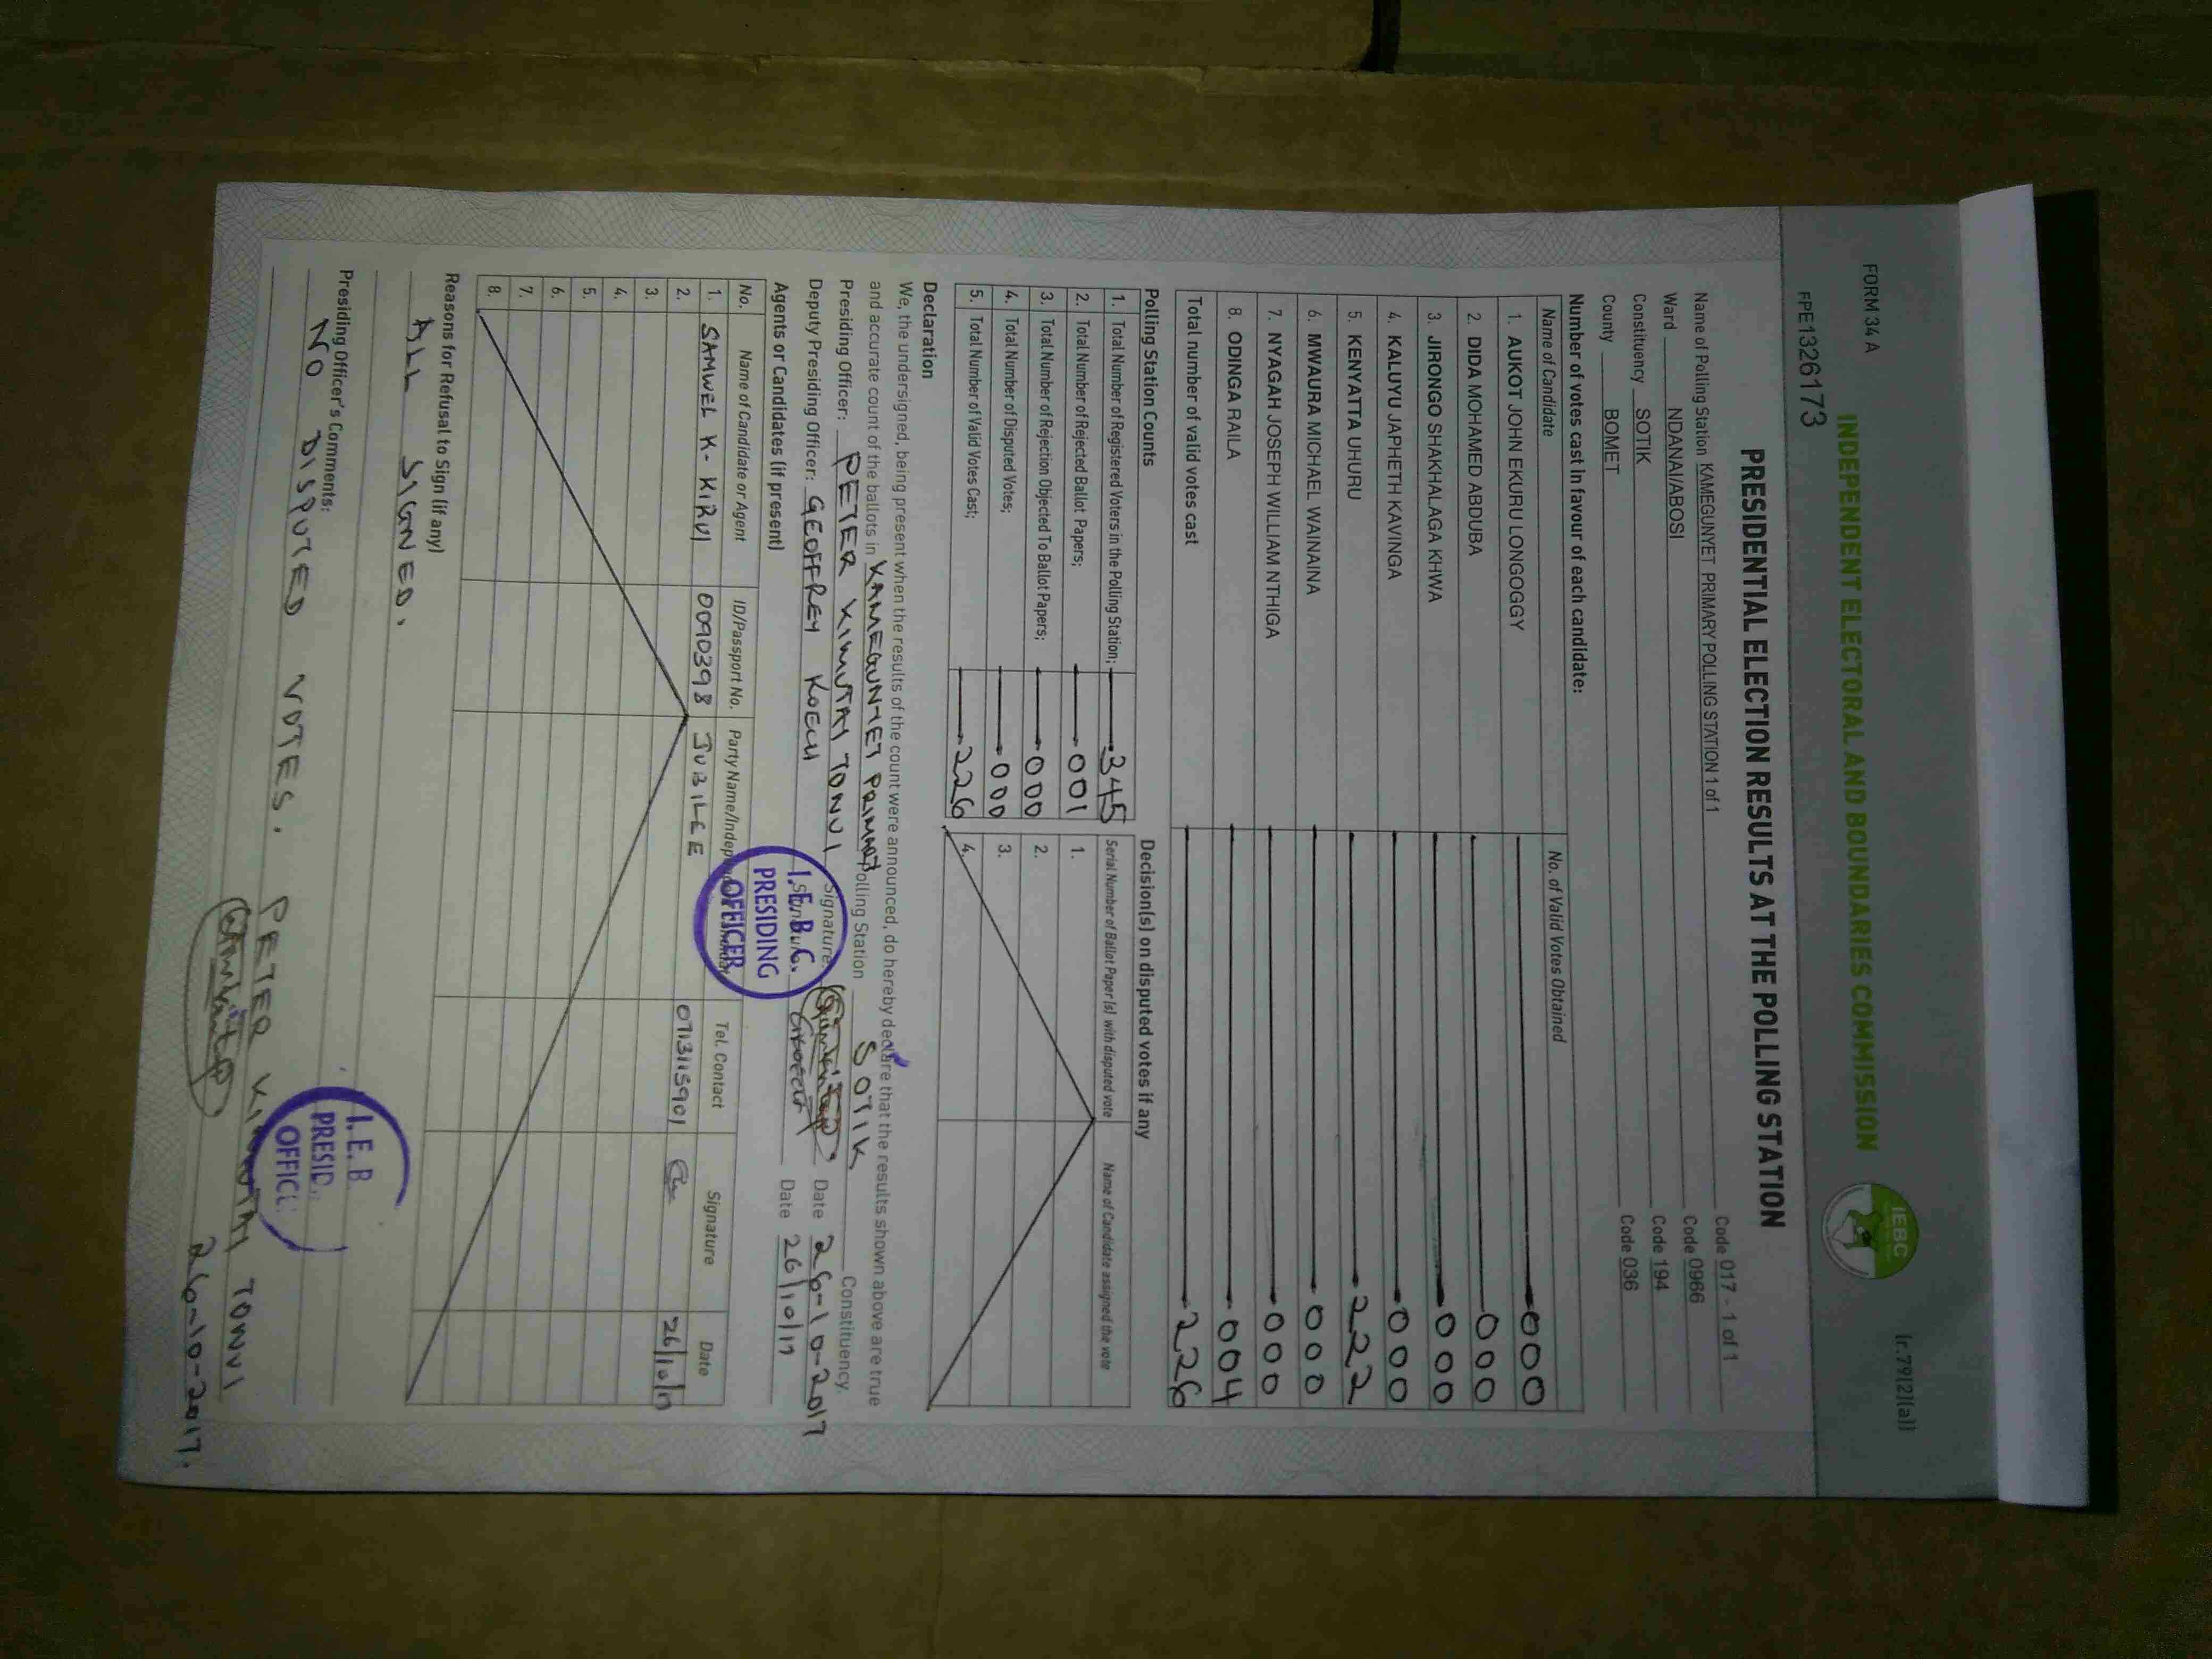 FORM 34 A
(r.79(2)(a))
INDEPENDENT ELECTORAL AND BOUNDARIES COMMISSION
IEBC
FPE1326173
PRESIDENTIAL ELECTION RESULTS AT THE POLLING STATION
Name of Polling Station KAMEGUNYET PRIMARY POLLING STATION 1 of 1 Code 017 - 1 of 1
Ward NDANAI/ABOSI Code 0966
Constituency SOTIK Code 194
County BOMET Code 036
Number of votes cast in favour of each candidate:
Name of Candidate No. of Valid Votes Obtained
1. AUKOT JOHN EKURU LONGOGGY 000
2. DIDA MOHAMED ABDUBA 000
3. JIRONGO SHAKHALAGA KHWA 000
4. KALUYU JAPHETH KAVINGA 000
5. KENYATTA UHURU 222
6. MWAURA MICHAEL WAINAINA 000
7. NYAGAH JOSEPH WILLIAM NTHIGA 000
8. ODINGA RAILA 004
Total number of valid votes cast 226
Polling Station Counts
1. Total Number of Registered Voters in the Polling Station; 345
2. Total Number of Rejected Ballot Papers; 001
3. Total Number of Rejection Objected To Ballot Papers; 000
4. Total Number of Disputed Votes; 000
5. Total Number of Valid Votes Cast; 226
Decision(s) on disputed votes if any
Serial Number of Ballot Paper (s) with disputed vote Name of Candidate assigned the vote
1.
2.
3.
4.
Declaration
We, the undersigned, being present when the results of the count were announced, do hereby declare that the results shown above are true
and accurate count of the ballots in KAMEGUNYET PRIMARY Polling Station SOTIK Constituency.
Presiding Officer: PETER KIMUTAI TONUI Signature: Date 26-10-2017
Deputy Presiding Officer: GEOFFREY KOECH Date 26/10/17
I.E.B.C.
PRESIDING
OFFICER
Agents or Candidates (if present)
No. Name of Candidate or Agent ID/Passport No. Party Name/Independent Tel. Contact Signature Date
1. SAMWEL K. KIRUI 0090398 JUBILEE 0713115901 26/10/17
2.
3.
4.
5.
6.
7.
8.
Reasons for Refusal to Sign (if any)
ALL SIGNED.
Presiding Officer's Comments:
NO DISPUTED VOTES. PETER KIMUTAI TONUI
26-10-2017.
I.E.B
PRESID
OFFICE